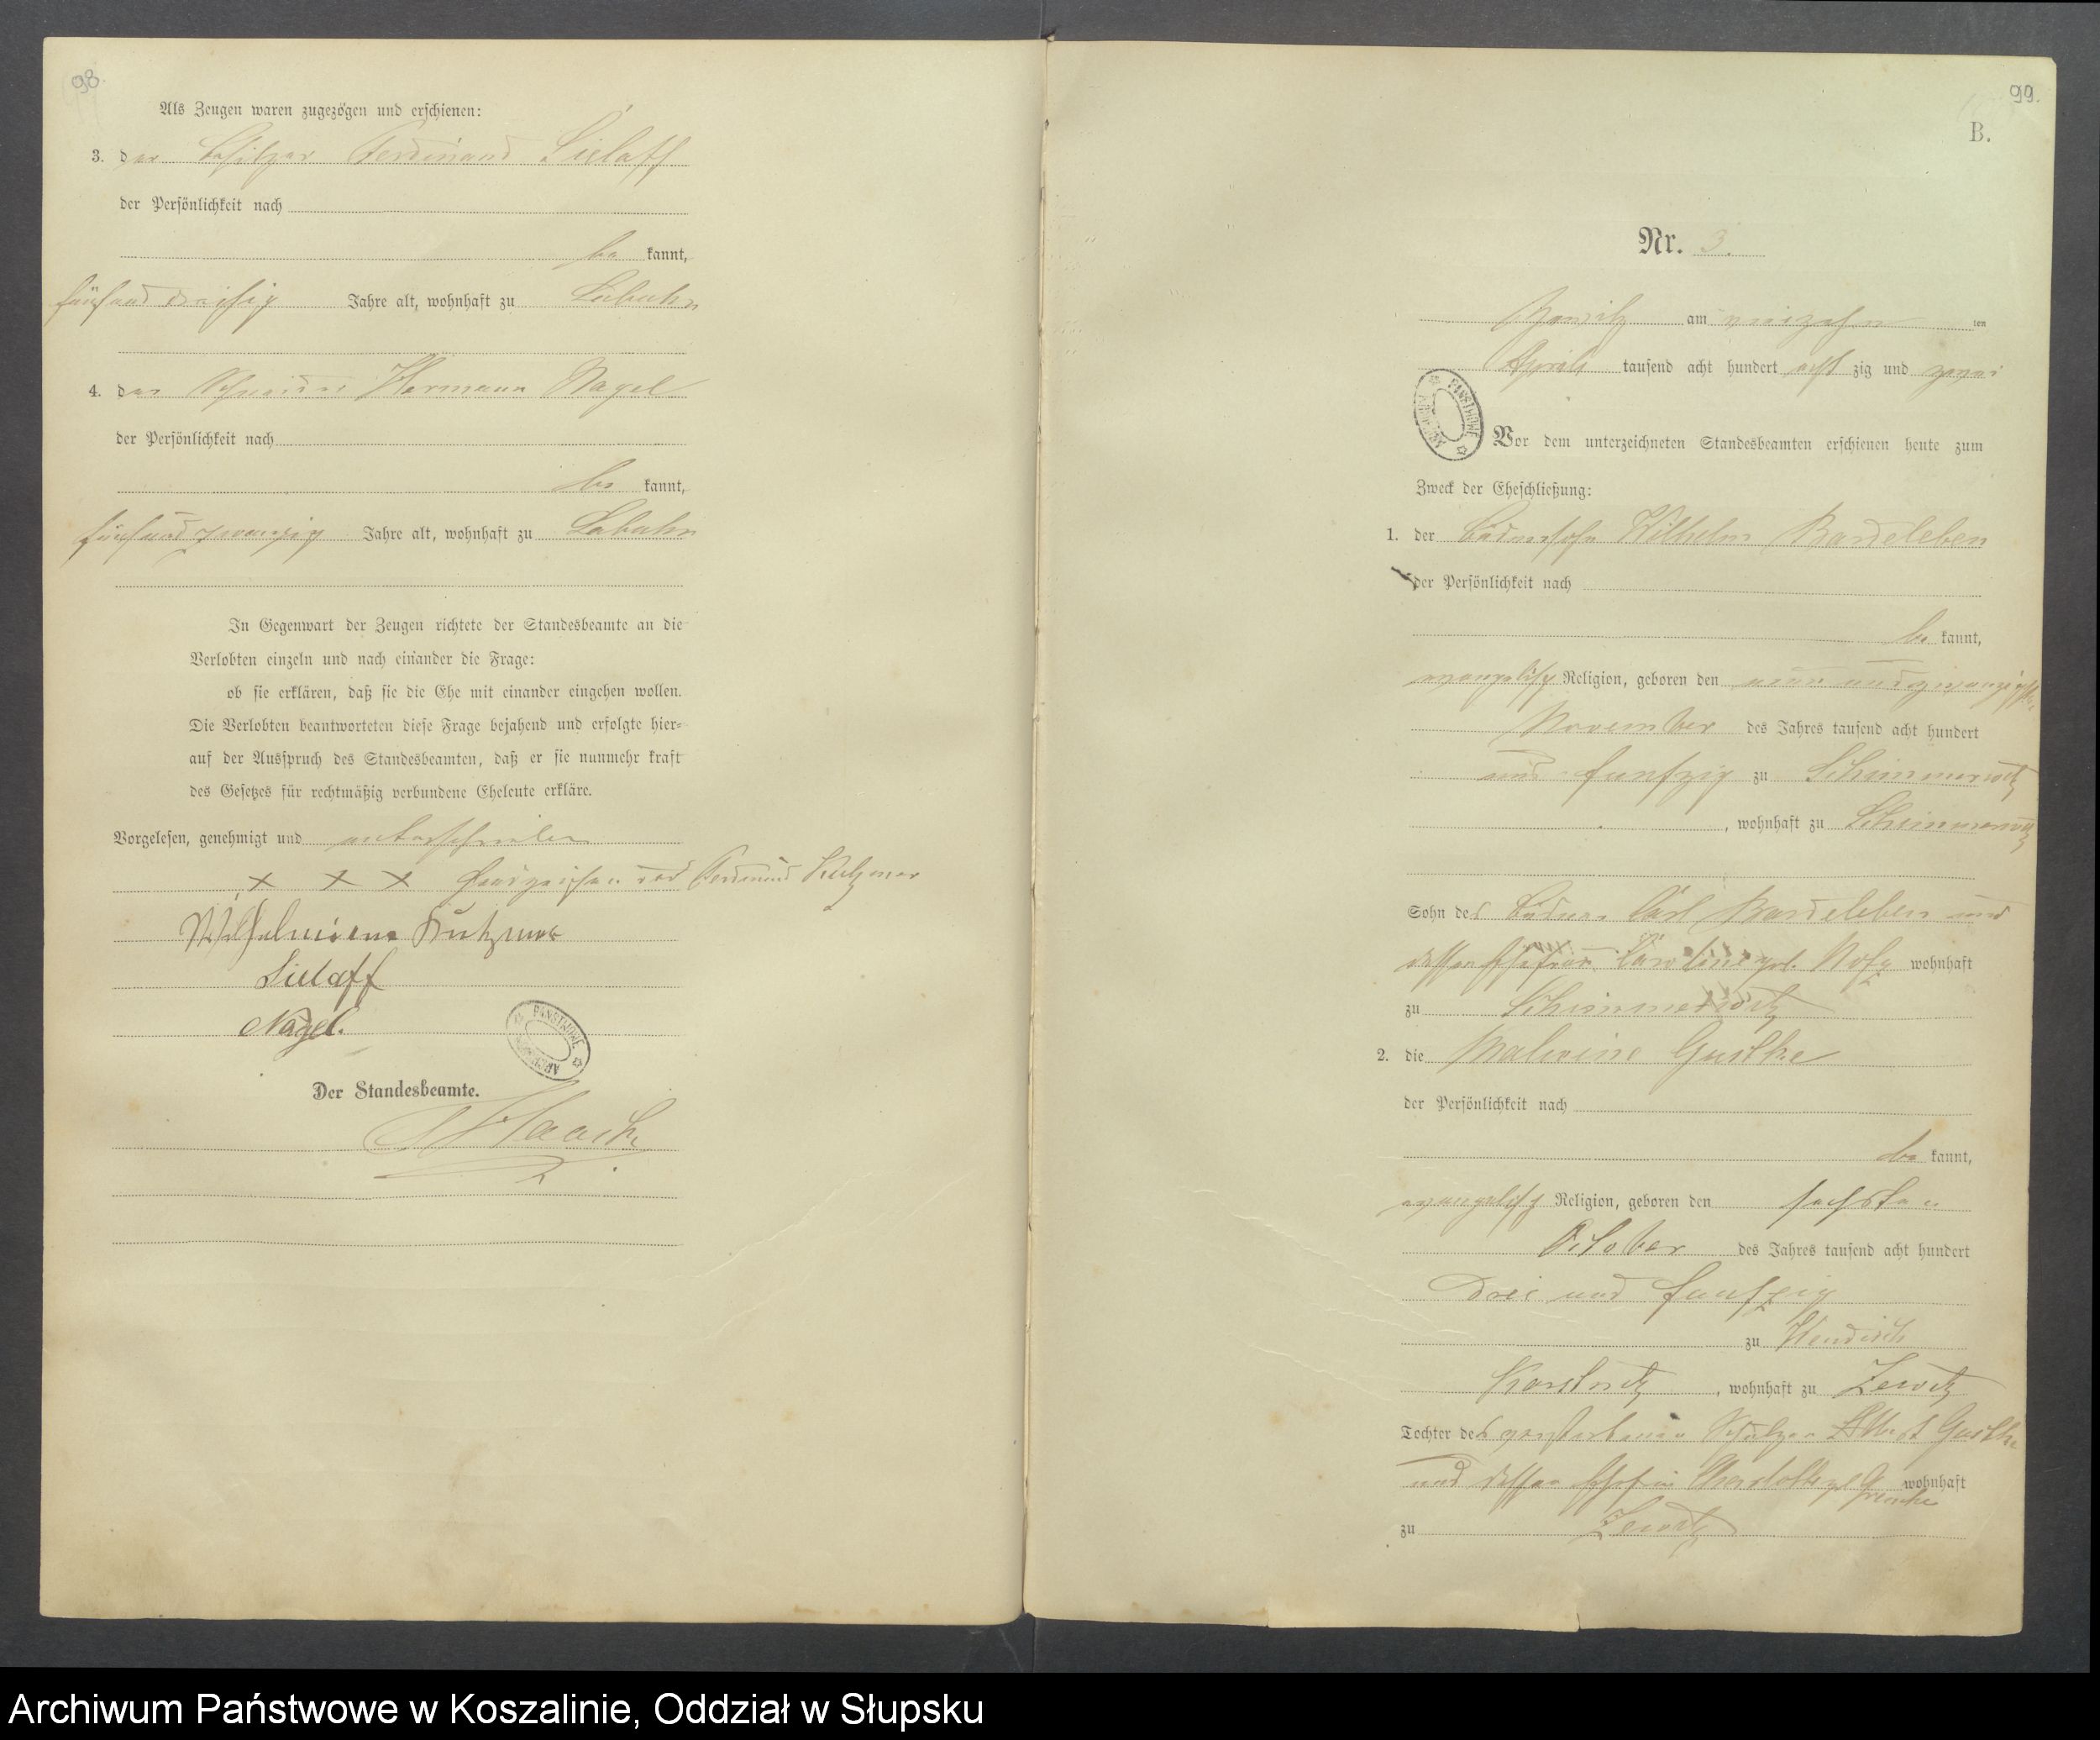 98.
Als Zeugen waren zugezogen und erschienen:
3. der Besitzer Ferdinand Sielaff
der Persönlichkeit nach
be kannt,
fünfunddreißig Jahre alt, wohnhaft zu Labuhn
4. der Schneider Hermann Nagel
der Persönlichkeit nach
be kannt,
fünfundzwanzig Jahre alt, wohnhaft zu Labuhn
In Gegenwart der Zeugen richtete der Standesbeamte an die
Verlobten einzeln und nach einander die Frage:
ob sie erklären, daß sie die Ehe mit einander eingehen wollen.
Die Verlobten beantworteten diese Frage bejahend und erfolgte hier-
auf der Ausspruch des Standesbeamten, daß er sie nunmehr kraft
des Gesetzes für rechtmäßig verbundene Eheleute erkläre.
Vorgelesen, genehmigt und unterschrieben
x x x Handzeichen des Ferdinand Kutzmer
Sielaff
Nagel.
ARCHIWUM PAŃSTWOWE
Der Standesbeamte.
99.
B.
Nr. 3.
am ten
April tausend acht hundert acht zig und zwei
ARCHIWUM PAŃSTWOWE
Vor dem unterzeichneten Standesbeamten erschienen heute zum
Zweck der Eheschließung:
1. der Büdnersohn Wilhelm Bardeleben
der Persönlichkeit nach
be kannt,
evangelisch Religion, geboren den neun und zwanzigsten
November des Jahres tausend acht hundert
und funfzig zu Schimmerwitz
, wohnhaft zu Schimmerwitz
Sohn des Büdner Carl Bardeleben und
dessen Ehefrau Caroline geb. wohnhaft
zu Schimmerwitz
2. die Malwine Guske
der Persönlichkeit nach
be kannt,
evangelisch Religion, geboren den sechsten
October des Jahres tausend acht hundert
drei und funfzig
zu Wendisch
Karstnitz, wohnhaft zu Zewitz
Tochter des verstorbenen
und dessen Ehefrau Charlotte geb. wohnhaft
zu Zewitz
Archiwum Państwowe w Koszalinie, Oddział w Słupsku